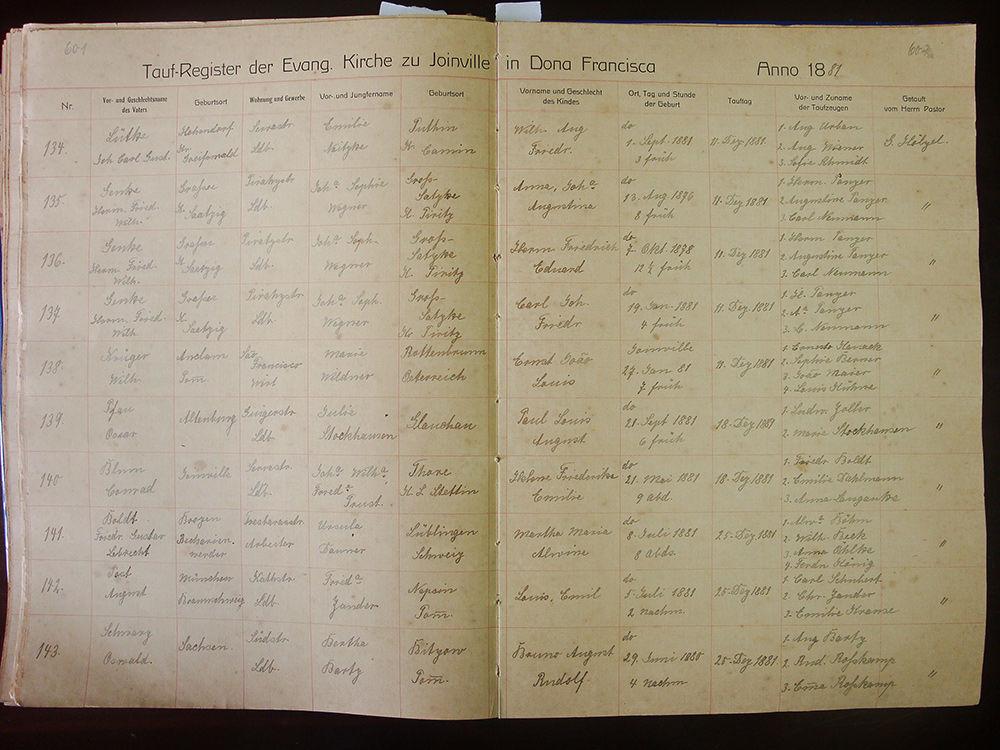 601
602
Tauf-Register der Evang. Kirche zu Joinville in Dona Francisca Anno 1881
Nr. Vor- und Geschlechtsname des Vaters Geburtsort Wohnung und Gewerbe Vor- und Jungfername Geburtsort Vorname und Geschlecht des Kindes Ort, Tag und Stunde der Geburt Tauftag Vor- und Zuname der Taufzeugen Getauft vom Herrn Pastor
134. Lütke Hohendorf Serrastr. Emilie Wilh. Aug do 1. Aug Urban
Joh. Carl Gust. Kr. Greifswald Ldb. Kr. Camin Friedr. 1. Sept. 1881 11. Dez 1881 2. Aug Wiener G. Hölzel.
3 früh 3. Sofie Schmidt
135. Senke Pirathstr Joh.ª Sophie Gross- Anna, Joh.ª do 1. Herm. Panzer
Herm. Fried. Kr. Saatzig Ldb. Wegner Satzke Augustina 13. Aug 1876 11. Dez 1881 2. Augustine Panzer "
Wilh. Kr. Piritz 8 früh 3. Carl Neumann
136. Senke Piratystr Joh.ª Soph. Gross- Herm Friedrich do 1. Herm Panzer
Herm. Fried. Kr. Saatzig Ldb. Wegner Satzke Eduard 7 Okt. 1878 11. Dez 1881 2. Augustine Panzer "
Wilh. Kr. Piritz 12 ½ früh 3. Carl Neumann
137. Senke Piratystr. Joh.ª Soph. Gross- Carl Joh. do 1. H. Panzer
Herm. Fried. Kr. Saatzig Ldb. Wegner Satzke Friedr 19. Jan. 1881 11. Dez. 1881 2. Aª Panzer "
Wilh. Kr Piritz 4 früh 3. C. Neumann
138. Krüger Anclam São Francisco Marie Rottenbrunn Ernst João Joinville
Wilh. Pom. Wirt Wildner Österreich Louis 27. Jan 81 11. Dez 1881 2. Sophie Berner "
7 früh 3. João Maier
4. Louis Kühne
139. Pfau Altenburg Julie Glauchau Paul Louis do 1. Ludw. Zoller
Oscar Ldb. Stockhausen August 21. Sept 1881 18. Dez 1881 2. Marie Stockhausen "
6 früh
140 Blum Joinville Serrastr. Joh.ª Wilh.ª Helene Friederike do 1. Friedr Boldt
Conrad Ldb. Fried.ª Emilie 21. Mai 1881 18. Dez 1881 2. Emilie Dahlmann "
9 abd.
141. Boldt. Ursula Martha Maria do 1. Alw.ª Böhm
Friedr. Gustav Arbeiter Alwine 8. Juli 1881 25. Dez 1881 2. Wilh. Beck "
Lebrecht Schweiz 8 Abds. 3. Anna Ohlke
4. Ferdn König
142. Post München Kathstr. Fried.ª Louis, Emil do 1. Carl Schubert
August Braunschweig Ldb. Zander Pom. 5. Juli 1881 25. Dez 1881 2. Chr. Zander "
2 Nachm. 3. Emilie Krause
143. Schwarz Sachsen. Südstr. Bertha Bruno August do 1. Aug Barty
Oswald. Ldb. Barty Pom. Rudolf 29. Juni 1880 25. Dez 1881 2. Rud. Rosskamp "
4 Nachm 3. Ema Rosskamp